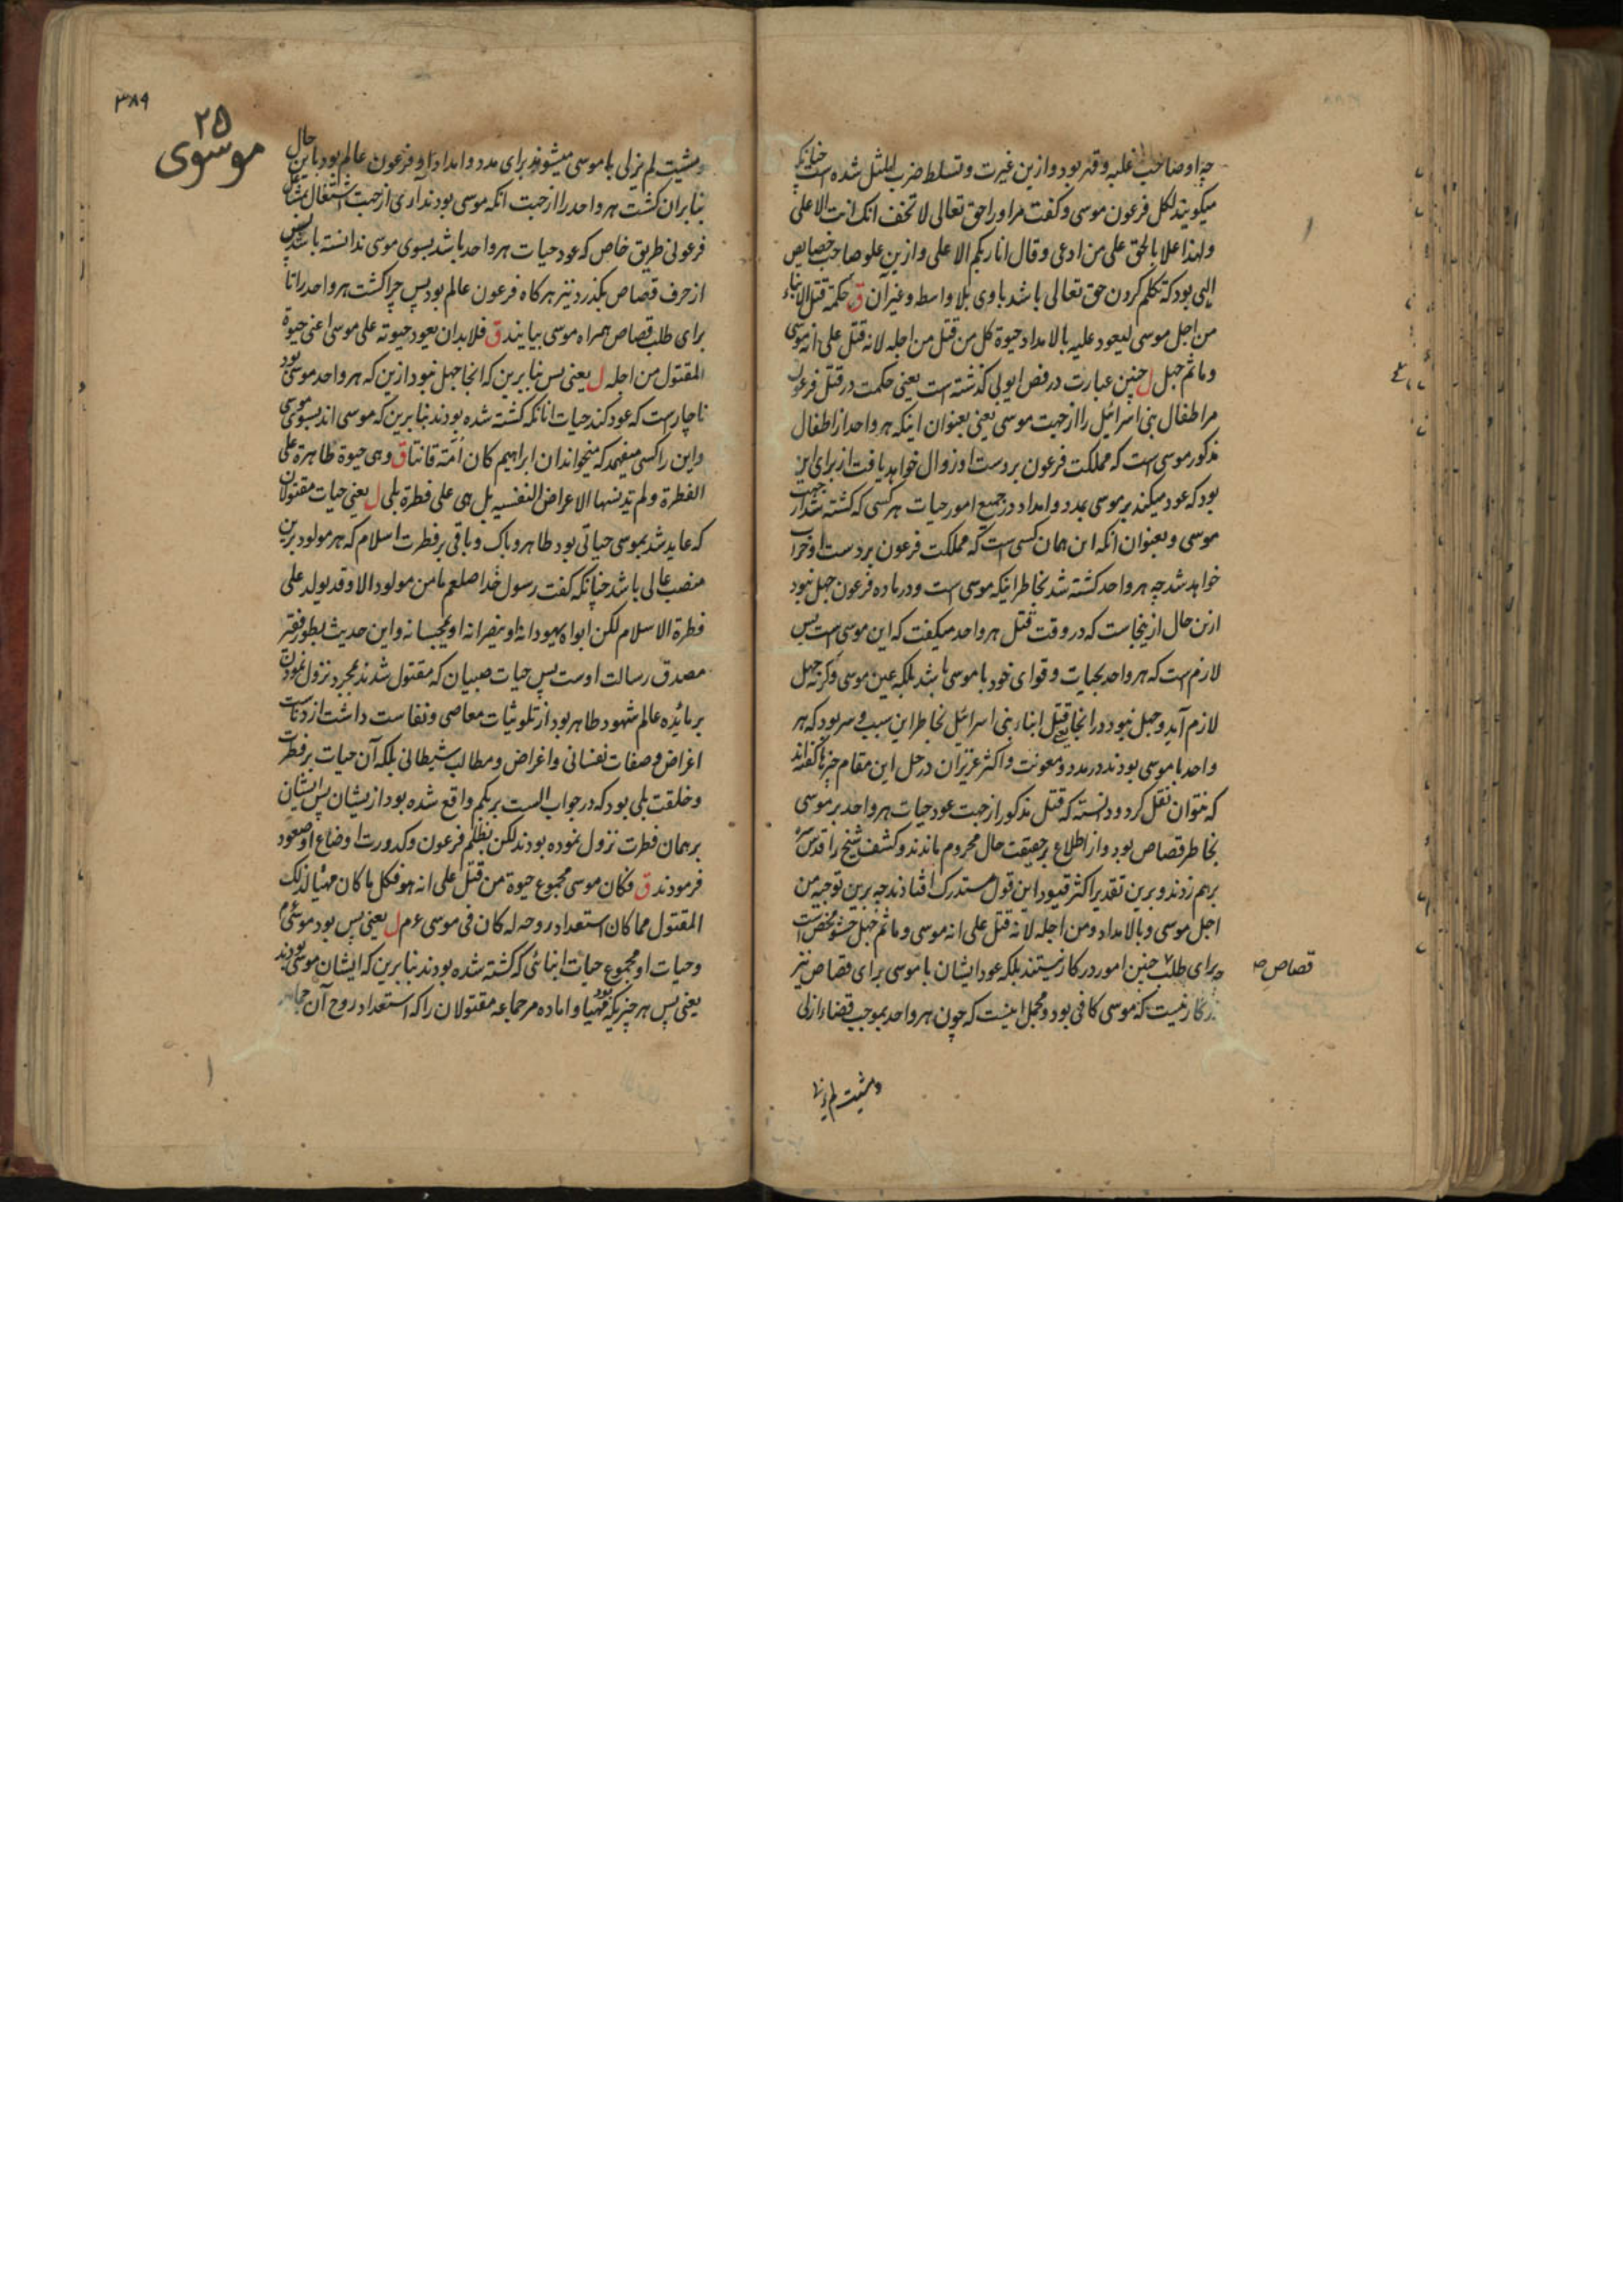 چه او صاحب غلبه و قهر بود و ازین غیرت و تسلط ضرب المثل شده است چنانکه
میکویند لکل فرعون موسی و کفت مر او را حق تعالی لا تخف انک انت الاعلی
و لهذا علا بالحق علی من ادعی و قال انا ربکم الاعلی و ازین علو صاحب خصایص
الهی بود که تکلم کردن حق تعالی باشد با وی بلا واسطه و غیر آن ق حکمة قتل الابناء
من اجل موسی لیعود علیه بالامداد حیوة کل من قتل من اجله لانه قتل علی انه موسی
و ما ثم جهل ل چنین عبارت در فص ایوبی کذشته است یعنی حکمت در قتل فرعون
مر اطفال بنی اسرائیل را از جهت موسی یعنی بعنوان اینکه هر واحد از اطفال
مذکور موسی است که مملکت فرعون بر دست او زوال خواهد یافت از برای این
بود که عود میکند بر موسی بمدد و امداد در جمیع امور حیات هر کسی که کشته شد از جهت
موسی و بعنوان انکه این همان کسی است که مملکت فرعون بر دست او خراب
خواهد شد چه هر واحد کشته شد بخاطر اینکه موسی است و در ماده فرعون جهل نبود
ازین حال از ینجاست که در وقت قتل هر واحد میکفت که این موسی است پس
لازم است که هر واحد بحیات و قوای خود با موسی باشد بلکه عین موسی و کرنه جهل
لازم آید و جهل نبود در انجا یعنی قتل ابناء بنی اسرائیل بخاطر این سبب و سر بود که هر
واحد با موسی بودند در مدد و معونت و اکثر عزیزان در حل این مقام چیزها کفته‌اند
که نتوان نقل کرد و دانسته که قتل مذکور از جهت عود حیات هر واحد بر موسی
بخاطر قصاص بود و از اطلاع بر حقیقت حال محروم ماندند و کشف شیخ را قدس سره
برهم زدند و برین تقدیر اکثر قیود این قول مستدرک افتادند چه برین توجیه من
اجل موسی و بالامداد و من اجله لانه قتل علی انه موسی و ما ثم جهل حشو محض است
چه برای طلب چنین امور در کار نیستند بلکه عود ایشان با موسی برای قصاص نیز
قصاص صح
در کار نیست که موسی کافی بود و مجمل اینست که چون هر واحد بموجب قضاء ازلی
و مشیت لم یزلی
۳۸۹
۲۵
موسوی
و مشیت لم یزلی با موسی میشوند برای مدد و امداد او و فرعون عالم بود باین حال
بنابران کشت هر واحد را از جهت انکه موسی بودند آری از جهت اشتغال بمشاغل
فرعونی طریق خاص که عود حیات هر واحد باشد بسوی موسی ندانسته باشد پس
از حرف قصاص بکذرد نیز هرکاه فرعون عالم بود پس چرا کشت هر واحد را تا
برای طلب قصاص همراه موسی بیایند ق فلا بد ان یعود حیوته علی موسی اعنی حیوة
المقتول من اجله ل یعنی پس بنابرین که انجا جهل نبود ازین که هر واحد موسی بود
ناچارست که عود کند حیات انانکه کشته شده بودند بنابرین که موسی اند بسوی موسی
و این را کسی میفهمد که میخواند ان ابراهیم کان امة قانتا ق و هی حیوة طاهرة علی
الفطرة و لم تدنسها الاعراض النفسیه بل هی علی فطرة بلی ل یعنی حیات مقتولان
که عاید شد بموسی حیاتی بود طاهر و پاک و باقی بر فطرت اسلام که هر مولود برین
منصب عالی باشد چنانکه کفت رسول خدا صلعم ما من مولود الا و قد یولد علی
فطرة الاسلام لکن ابواه یهودانه او ینصرانه او یمجسانه و این حدیث بطور فقیر
مصدق رسالت اوست پس حیات صبیان که مقتول شدند بمجرد نزول نمودن
بر مائده عالم شهود طاهر بود از تلویثات معاصی و نفاست داشت از دناءت
اغراض و صفات نفسانی و اغراض و مطالب شیطانی بلکه آن حیات بر فطرت
و خلقت بلی بود که در جواب الست بربکم واقع شده بود از یشان پس ایشان
بر همان فطرت نزول نموده بودند لکن بظلم فرعون و کدورت اوضاع او صعود
فرمودند ق فکان موسی مجموع حیوة من قتل علی انه هو فکل ما کان مهیئا لذلک
المقتول مما کان استعداد روحه له کان فی موسی عم ل یعنی پس بود موسی عم
و حیات او مجموع حیات ابنائی که کشته شده بودند بنابرین که ایشان موسی بودند
یعنی پس هر چیزیکه مهیا بود و اماده مر جماعه مقتولان را که استعداد روح آن جماعه